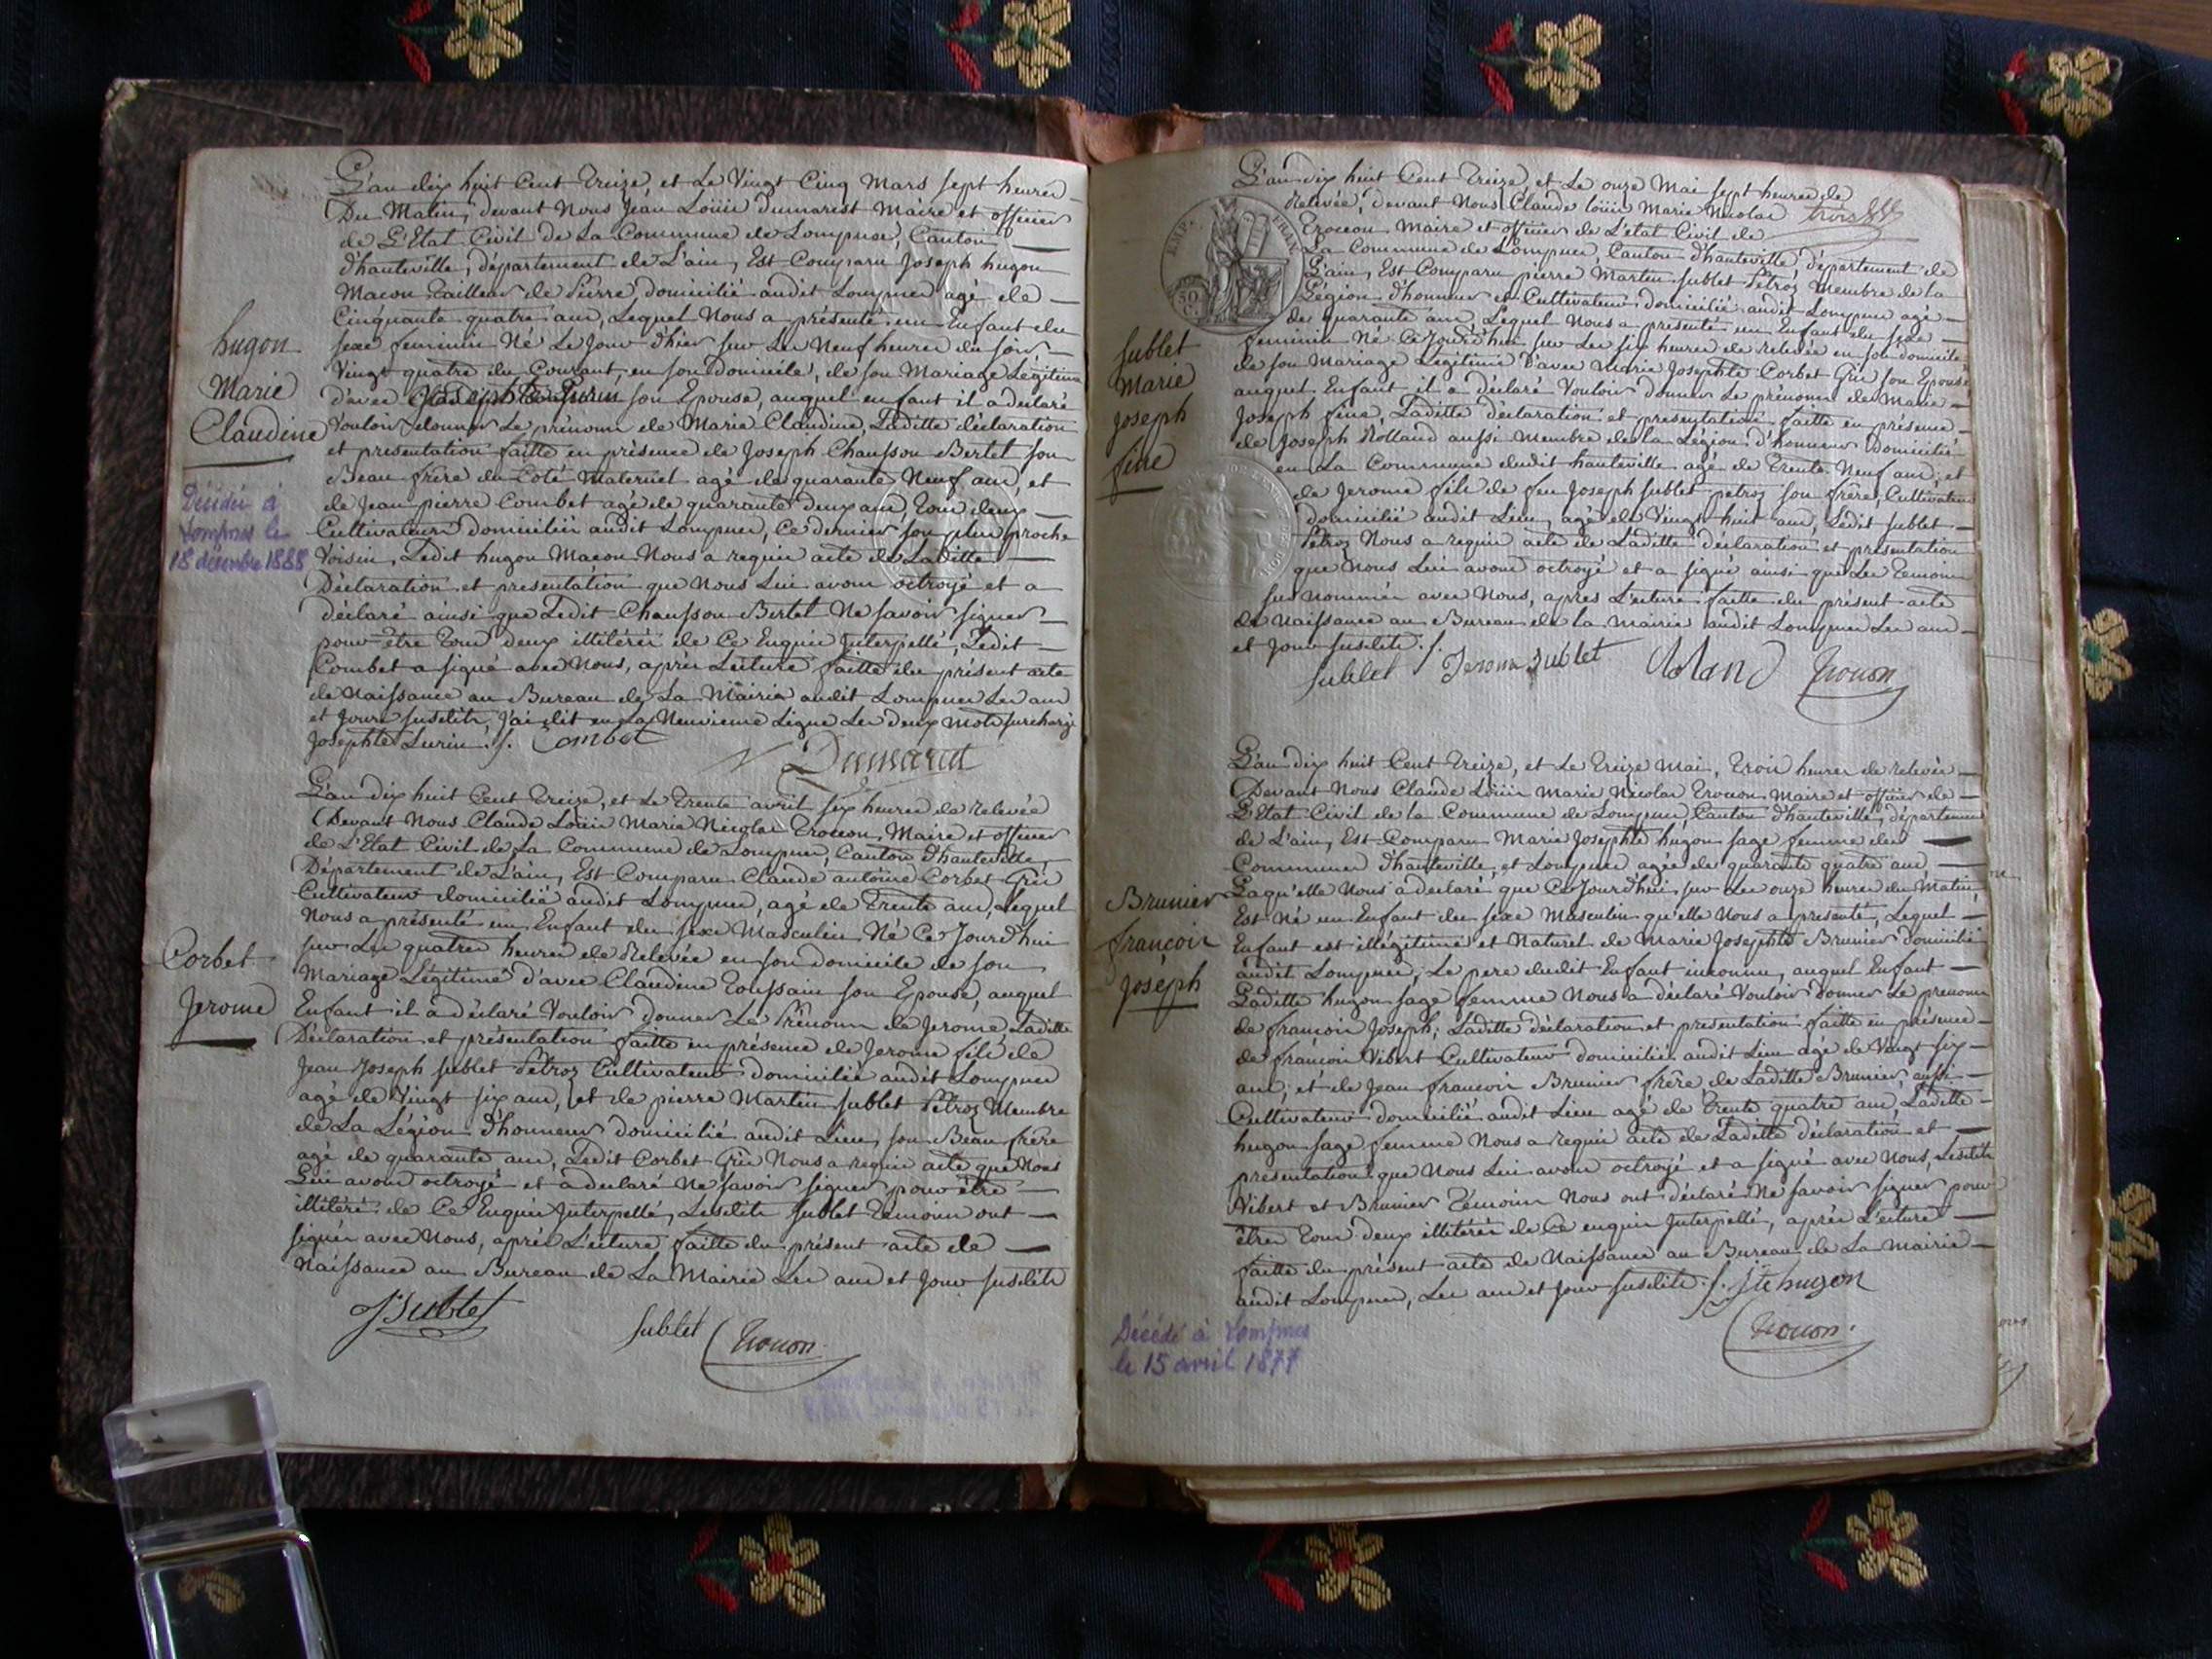 L'an dix huit Cent Treize, et Le Vingt Cinq Mars sept heures
Du Matin, devant Nous Jean Loüis Dumarest Maire et officier
de L'Etat Civil de La Commune de Lompnes, Canton
d'hauteville, département de L'ain, Est Comparu Joseph hugon
Macon Tailleur de Pierre, domicilié audit Lompnes agé de
Cinquante quatre ans, Lequel Nous a présenté un Enfant du
sexe feminin Né Le Jour d'hier sur Les Neuf heures du soir
Vingt quatre du Courant, en son Domicile, de son Mariage Légitime
d'avec Josephte Lurin son Epouse, auquel enfant il a declaré
Vouloir donner Le prénom de Marie Claudine, Laditte déclaration
et presentation faitte en présence de Joseph Chausson Bertet son
Beau frère du Coté Maternel agé de quarante Neuf ans, et
de Jean pierre Combet agé de quarante deux ans, Tous deux
Cultivateurs domiciliés audit Lompnes, Ce dernier son plus proche
Voisin, Ledit hugon Macon Nous a requis acte de Laditte
Déclaration et presentation que Nous Lui avons octroyé et a
déclaré ainsi que Ledit Chausson Bertet Ne savoir signer
pour être Tous deux illitérés de Ce Enquis Interpellé, Ledit
Combet a signé avec Nous, après Lecture faitte du présent acte
de Naissance au Bureau de La Mairie audit Lompnes Les an
et Jours susdits, J'ai dit en La Neuvieme Ligne Les deux mots surchargé
Josephte Lurin ./. Combet
Dumarest
hugon
Marie
Claudine
Décédée à
Lompnes le
18 décembre 1888
L'an dix huit Cent Treize, et Le Trente avril six heures de Relevée
Devant Nous Claude Loüis Marie Nicolas Trocon, Maire et officier
de L'Etat Civil de La Commune de Lompnes, Canton d'hauteville,
Département de L'ain, Est Comparu Claude antoine Corbet Gris
Cultivateur domicilié audit Lompnes, agé de Trente ans, Lequel
Nous a présenté un Enfant du sexe Masculin Né Ce Jourd'hui
sur Les quatre heures de Relevée en son domicile de son
Mariage Légitime d'avec Claudine Toussain son Epouse, auquel
Enfant il a déclaré Vouloir donner Le Prénom de Jerome, Laditte
Déclaration et présentation faitte en présence de Jerome fils de
Jean Joseph sublet Petroz Cultivateur domicilié audit Lompnes
agé de Vingt six ans, et de pierre Martin sublet Petroz Membre
de La Légion d'honneur domicilié audit Lieu, son Beau frère
agé de quarante ans, Ledit Corbet Gris Nous a requis acte que Nous
Lui avons octroyé et a declaré Ne savoir signer pour être
illitéré de Ce Enquis Interpellé, Lesdits sublet Témoins ont
signés avec Nous, après Lecture faitte du présent acte de
Naissance au Bureau de La Mairie Les an et Jour susdits
J Sublet sublet Trocon
Corbet
Jerome
L'an dix huit Cent Treize, et Le onze Mai sept heures de
Relevée, devant Nous Claude loüis Marie Nicolas
Trocon Maire et officier de L'état Civil de
La Commune de Lompnes, Canton d'hauteville département de
L'ain, Est Comparu pierre Martin sublet Petroz Membre de la
Légion d'honneur et Cultivateur domicilié audit Lompnes agé
de quarante ans, Lequel Nous a présenté un Enfant du sexe
feminin Né Ce Jourd'hui sur Les six heures de relevée en son domicile
de son Mariage Légitime d'avec Marie Josephte Corbet Gris son Epouse
auquel Enfant il a déclaré Vouloir donner Le prénom de Marie
Joseph fine, Laditte déclaration et presentation faitte en présence
de Joseph Rolland aussi Membre de la Légion d'honneur domicilié
en La Commune dudit hauteville agé de Trente Neuf ans, et
de Jerome fils de feu Joseph sublet petroz son frère, Cultivateur
domicilié audit Lieu, agé de Vingt huit ans, Ledit sublet
Petroz Nous a requis acte de Laditte déclaration et présentation
que Nous Lui avons octroyé et a signé ainsi que Les Temoins
sus nommés avec Nous, après Lecture faitte du présent acte
de Naissance au Bureau de la Mairie audit Lompnes Les an
et Jour susdits ./.
sublet Jerome sublet Roland Trocon
EMP. FRAN.
50 C.
sublet
Marie
Joseph
fine
L'an dix huit Cent Treize, et Le Treize Mai, Trois heures de relevée
Devant Nous Claude Loüis Marie Nicolas Trocon Maire et officier de
L'Etat Civil de la Commune de Lompnes, Canton d'hauteville, département
de L'ain, Est Comparu Marie Josephte hugon sage femme des
Communes d'hauteville, et Lompnes agée de quarante quatre ans,
Laqu'elle Nous a declaré que Ce Jourd'hui sur Les onze heures du Matin
Est Né un Enfant du sexe Masculin qu'elle Nous a presenté, Lequel
Enfant est illégitime et Naturel de Marie Josephte Brunier domicilié
audit Lompnes, Le pere dudit Enfant inconnu, auquel Enfant
Laditte hugon sage femme Nous a déclaré Vouloir donner Le prenom
de françois Joseph; Laditte déclaration et presentation faitte en présence
de françois Vibert Cultivateur domicilié audit Lieu agé de Vingt six
ans, et de Jean francois Brunier frère de Laditte Brunier, aussi
Cultivateur domicilié audit Lieu agé de Trente quatre ans, Laditte
hugon sage femme Nous a requis acte de Laditte déclaration et
presentation que Nous Lui avons octroyé et a signé avec Nous, Lesdits
Vibert et Brunier Témoins Nous ont déclaré Ne savoir signer pour
être Tous deux illitérés de Ce enquis Interpellé, après Lecture
faitte du présent acte de Naissance au Bureau de La Mairie
audit Lompnes, Les an et Jour susdits ./. Jte hugon
Trocon
Brunier
françois
Joseph
Décédé à Lompnes
le 15 avril 1877